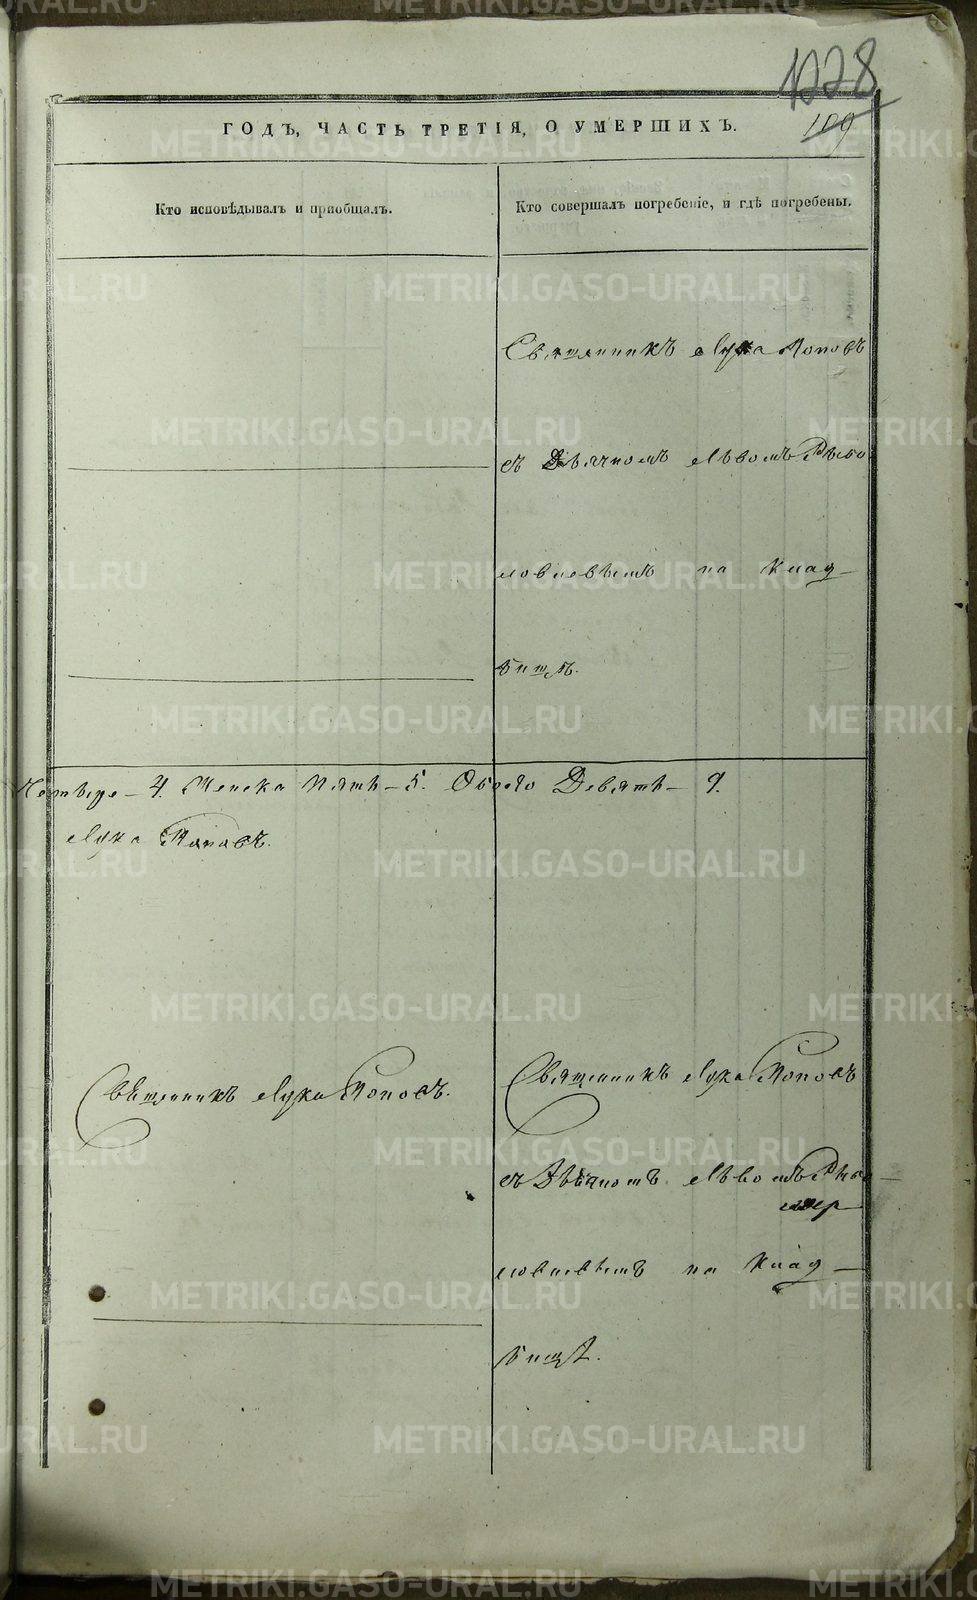 1228
109
ГОДЪ, ЧАСТЬ ТРЕТІЯ, О УМЕРШИХЪ.
Кто исповѣдывалъ и пріобщалъ.
Кто совершалъ погребеніе, и гдѣ погребены.
Священникъ Лука Поповъ
съ Дьячкомъ Львомъ
на клад-
бищѣ.
Четыре - 4. Женска пять - 5. Обоего Девять - 9.
Лука Поповъ.
Священникъ Лука Поповъ.
Священникъ Лука Поповъ
съ Дьячкомъ Львомъ
на клад-
бищѣ.
METRIKI.GASO-URAL.RU